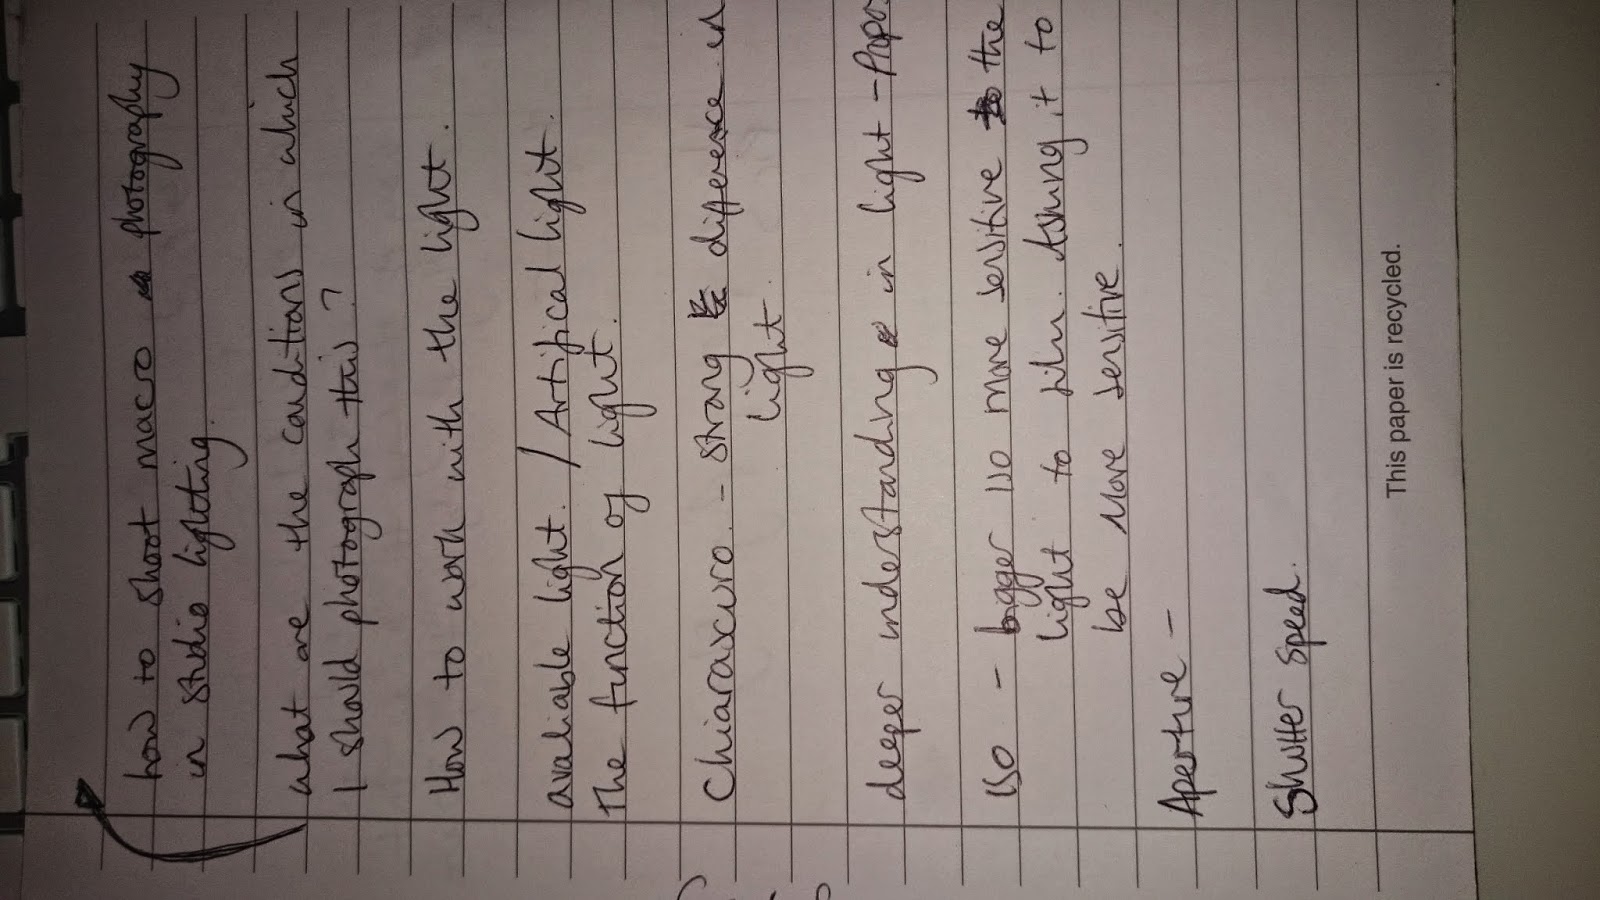 how to shoot macro photography
in studio lighting.
what are the conditions in which
I should photograph this?
How to work with the light.
avaliable light. / Artifical light.
The function of light.
Chiaraxcuro. - strong difference in
light.
deeper understanding in light - Papa
ISO - bigger ISO more sensitive the
light to film. Asking it to
be more sensitive.
Aperture -
Shutter Speed.
This paper is recycled.